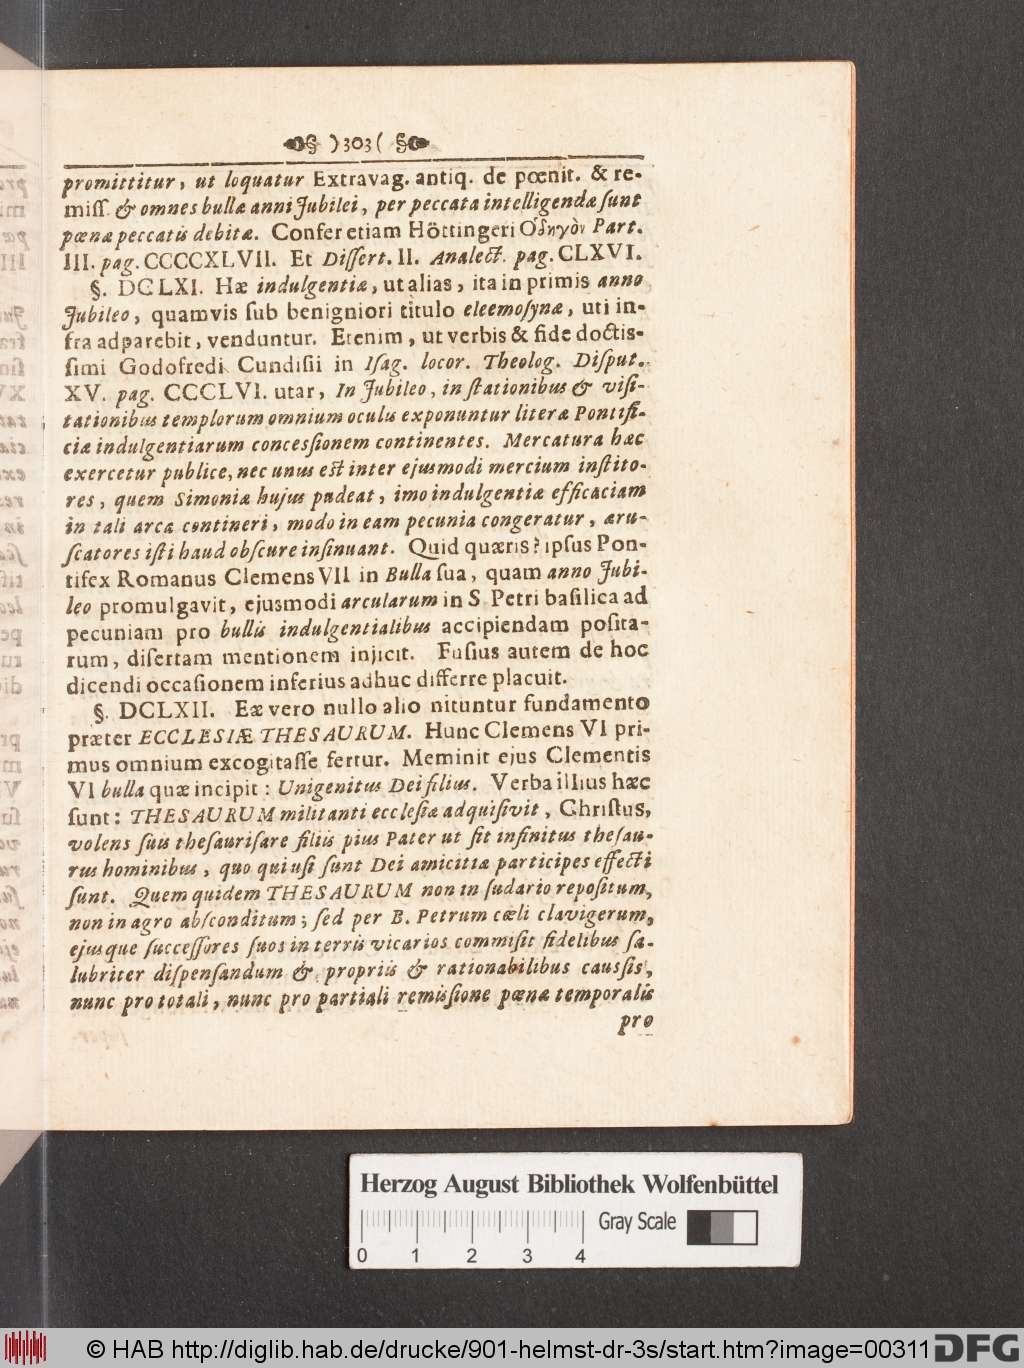 )303(
promittitur, ut loquatur Extravag. antiq. de pœnit. & re-
miſſ. & omnes bullæ anni Jubilei, per peccata intelligendæ ſunt
pœnæ peccatis debitæ. Confer etiam Höttingeri Ὁδηγὸν Part.
III. pag. CCCCXLVII. Et Diſſert. II. Analect. pag. CLXVI.
§. DCLXI. Hæ indulgentiæ, ut alias, ita in primis anno
Jubileo, quamvis ſub benigniori titulo eleemoſynæ, uti in-
fra adparebit, venduntur. Etenim, ut verbis & fide doctis-
ſimi Godofredi Cundiſii in Iſag. locor. Theolog. Diſput.
XV. pag. CCCLVI. utar, In Jubileo, in ſtationibus & viſi-
tationibus templorum omnium oculis exponuntur literæ Pontifi-
ciæ indulgentiarum conceſſionem continentes. Mercatura hæc
exercetur publice, nec unus eſt inter ejusmodi mercium inſtito-
res, quem Simoniæ hujus pudeat, imo indulgentiæ efficaciam
in tali arca contineri, modo in eam pecunia congeratur, æru-
ſcatores iſti haud obſcure inſinuant. Quid quæris? ipſus Pon-
tifex Romanus Clemens VII in Bulla ſua, quam anno Jubi-
leo promulgavit, ejusmodi arcularum in S. Petri baſilica ad
pecuniam pro bullis indulgentialibus accipiendam poſita-
rum, diſertam mentionem injicit. Fuſius autem de hoc
dicendi occaſionem inferius adhuc differre placuit.
§. DCLXII. Eæ vero nullo alio nituntur fundamento
præter ECCLESIÆ THESAURUM. Hunc Clemens VI pri-
mus omnium excogitaſſe fertur. Meminit ejus Clementis
VI bulla quæ incipit: Unigenitus Dei filius. Verba illius hæc
ſunt: THESAURUM militanti eccleſiæ adquiſivit, Chriſtus,
volens ſuis theſauriſare filiis pius Pater ut ſit infinitus theſau-
rus hominibus, quo qui uſi ſunt Dei amicitiæ participes effecti
ſunt. Quem quidem THESAURUM non in ſudario repoſitum,
non in agro abſconditum; ſed per B. Petrum cœli clavigerum,
ejusque ſucceſſores ſuos in terris vicarios commiſit fidelibus ſa-
lubriter diſpenſandum & propriis & rationabilibus cauſſis,
nunc pro totali, nunc pro partiali remiſſione pœnæ temporalis
pro
Herzog August Bibliothek Wolfenbüttel
Gray Scale
0 1 2 3 4
© HAB http://diglib.hab.de/drucke/901-helmst-dr-3s/start.htm?image=00311 DFG